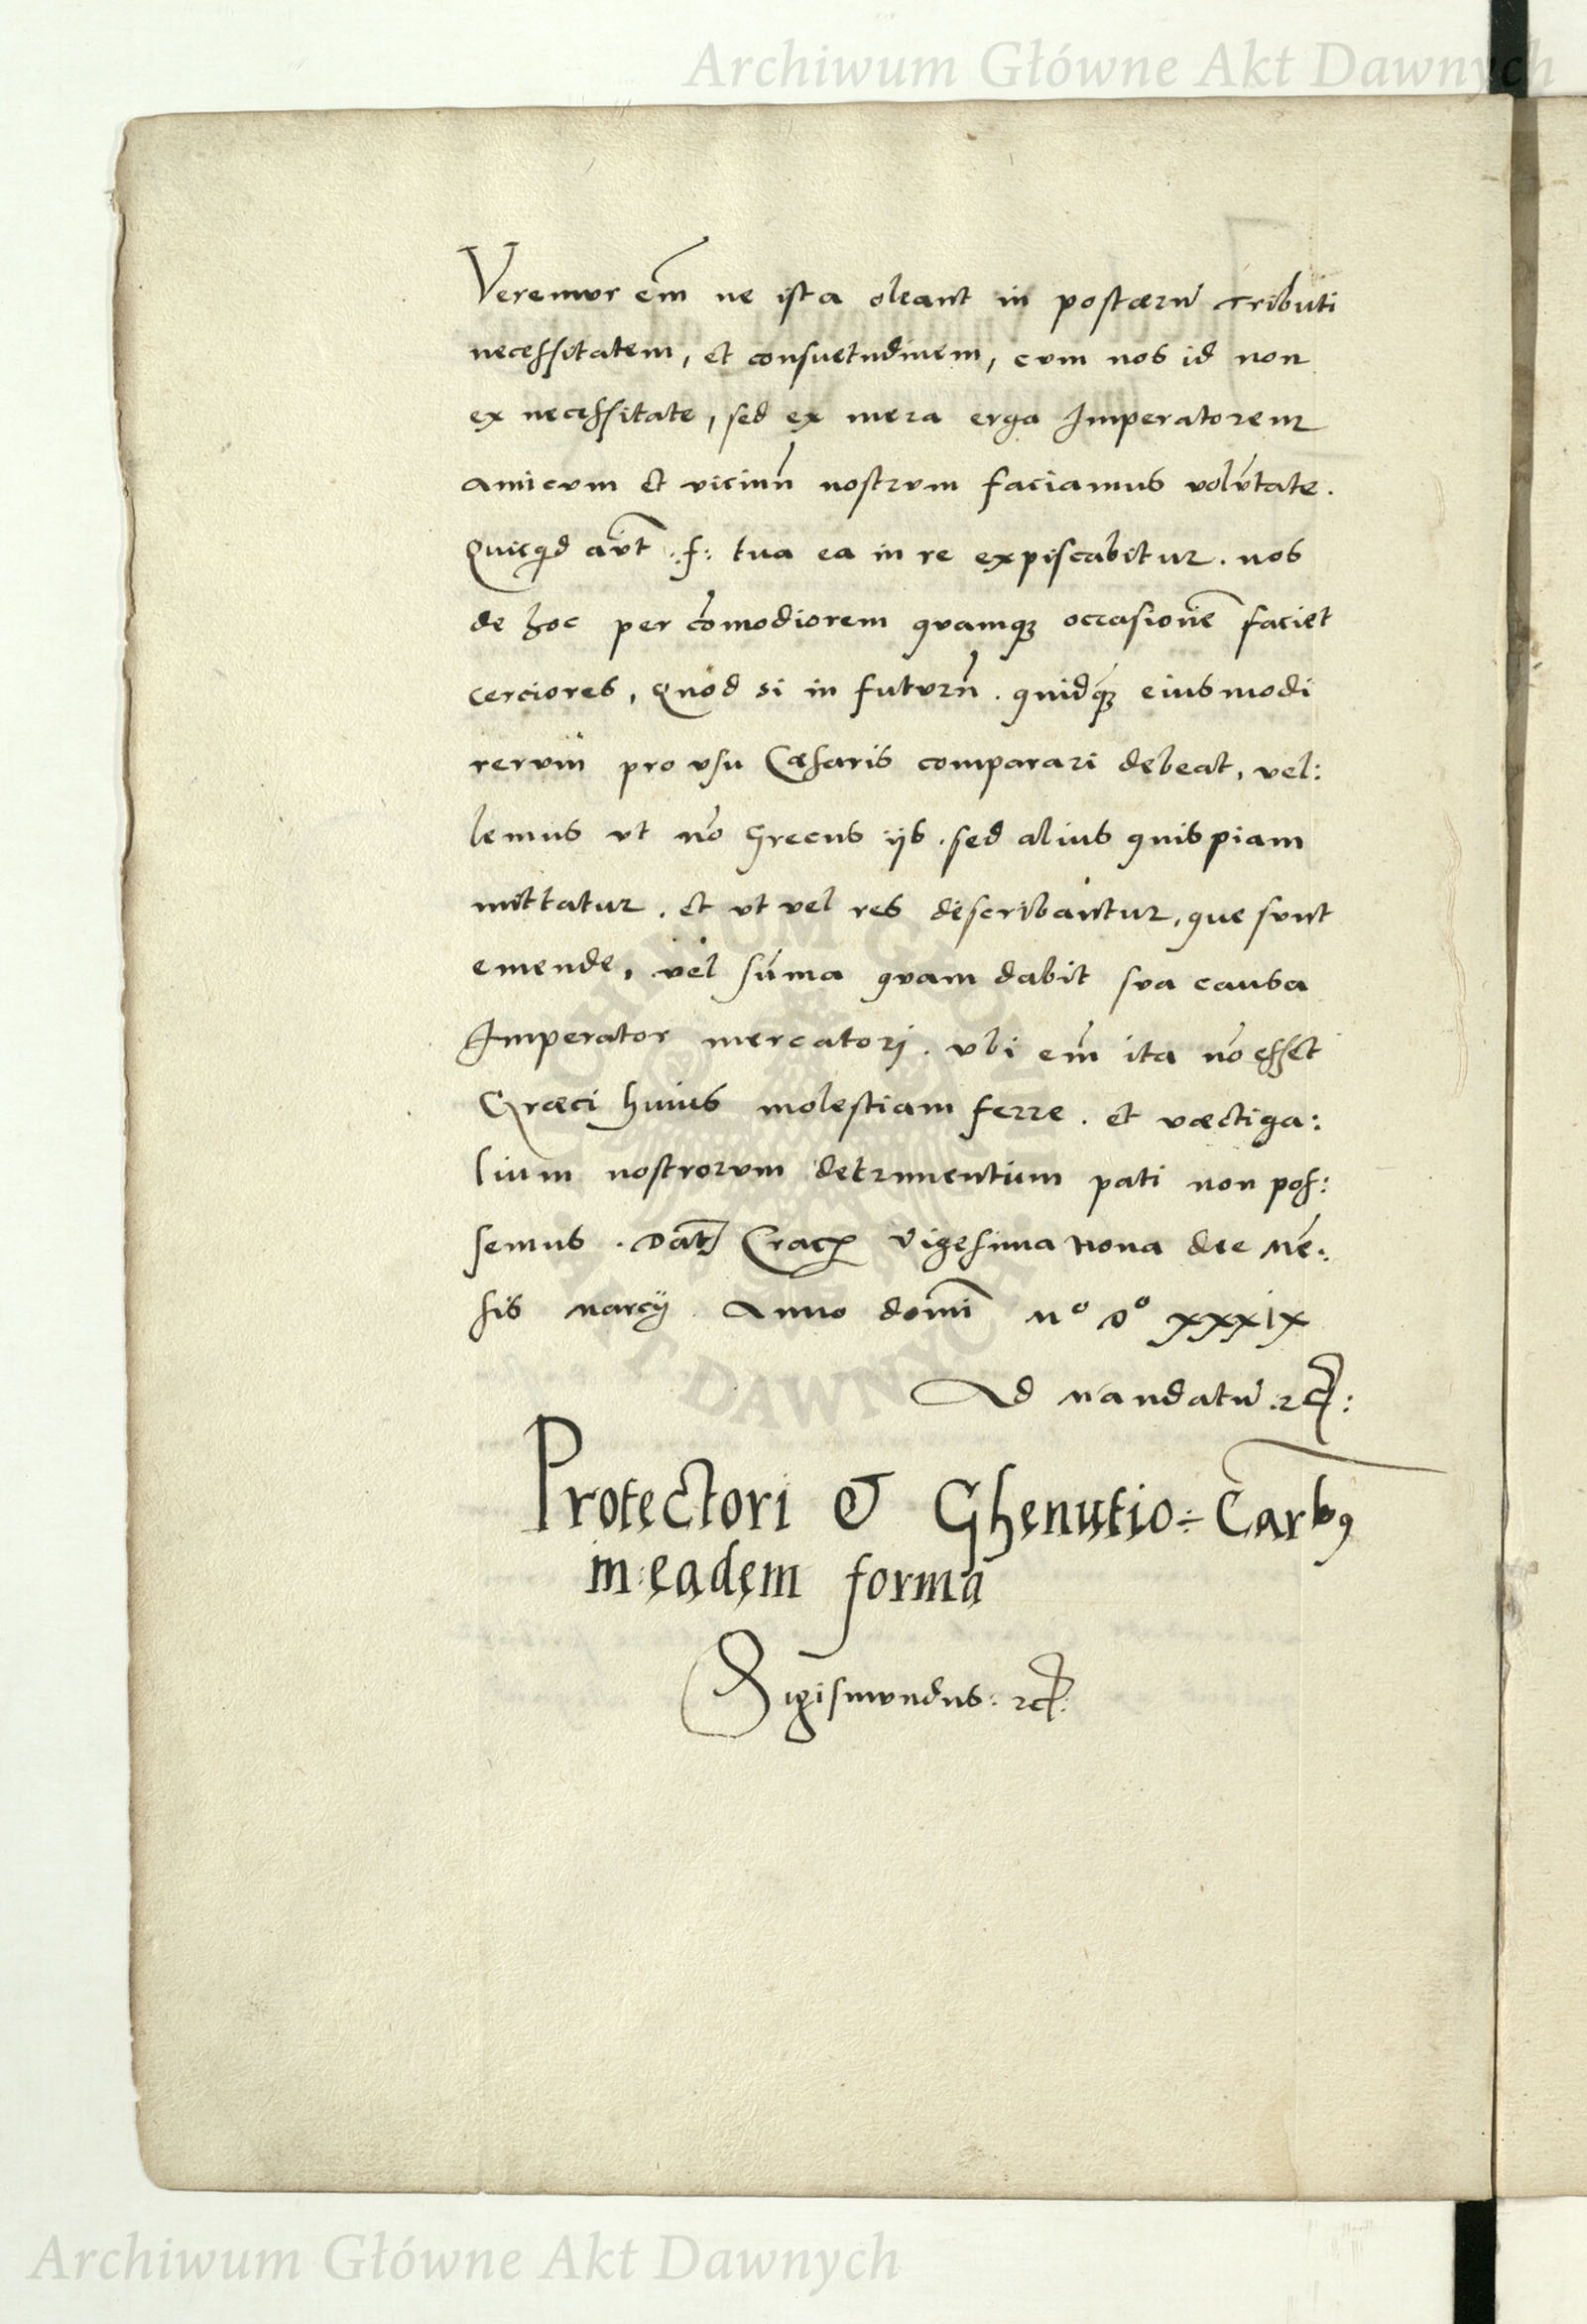 Archiwum Główne Akt Dawnych
Veremur em̄ ne ista oleant in postærū tributi
necessitatem, et consuetudinem, cum nos id non
ex necessitate, sed ex mera erga Imperatorem
amicum et vicinū nostrum faciamus volūtate.
Quicqd aūt .f: tua ea in re expiscabitur. nos
de hoc per cōmodiorem quamqȝ occasionē faciet
cerciores, Quod si in futurū. quidqȝ eiusmodi
rerum pro usu Cæsaris comparari debeat, vel:
lemus ut nō Grecus ijs. sed alius quispiam
mittatur. et ut vel res describantur, que sunt
emende, vel sūma quam dabit sua causa
Imperator mercatori. ubi em̄ ita nō esset
Græci huius molestiam ferre. et væctiga:
lium nostrorum detrimentium pati non pos:
semus. Dat Crac Vigesima nona die Mē:
sis Marcij Anno domī Mº Dº xxxix
Ad Mandatū :rc:
Protectori & Ghenutio ÷ Carbꝰ
in: eadem forma
Sigismundus: rc:
ARCHIWUM GŁÓWNE AKT DAWNYCH
Archiwum Główne Akt Dawnych